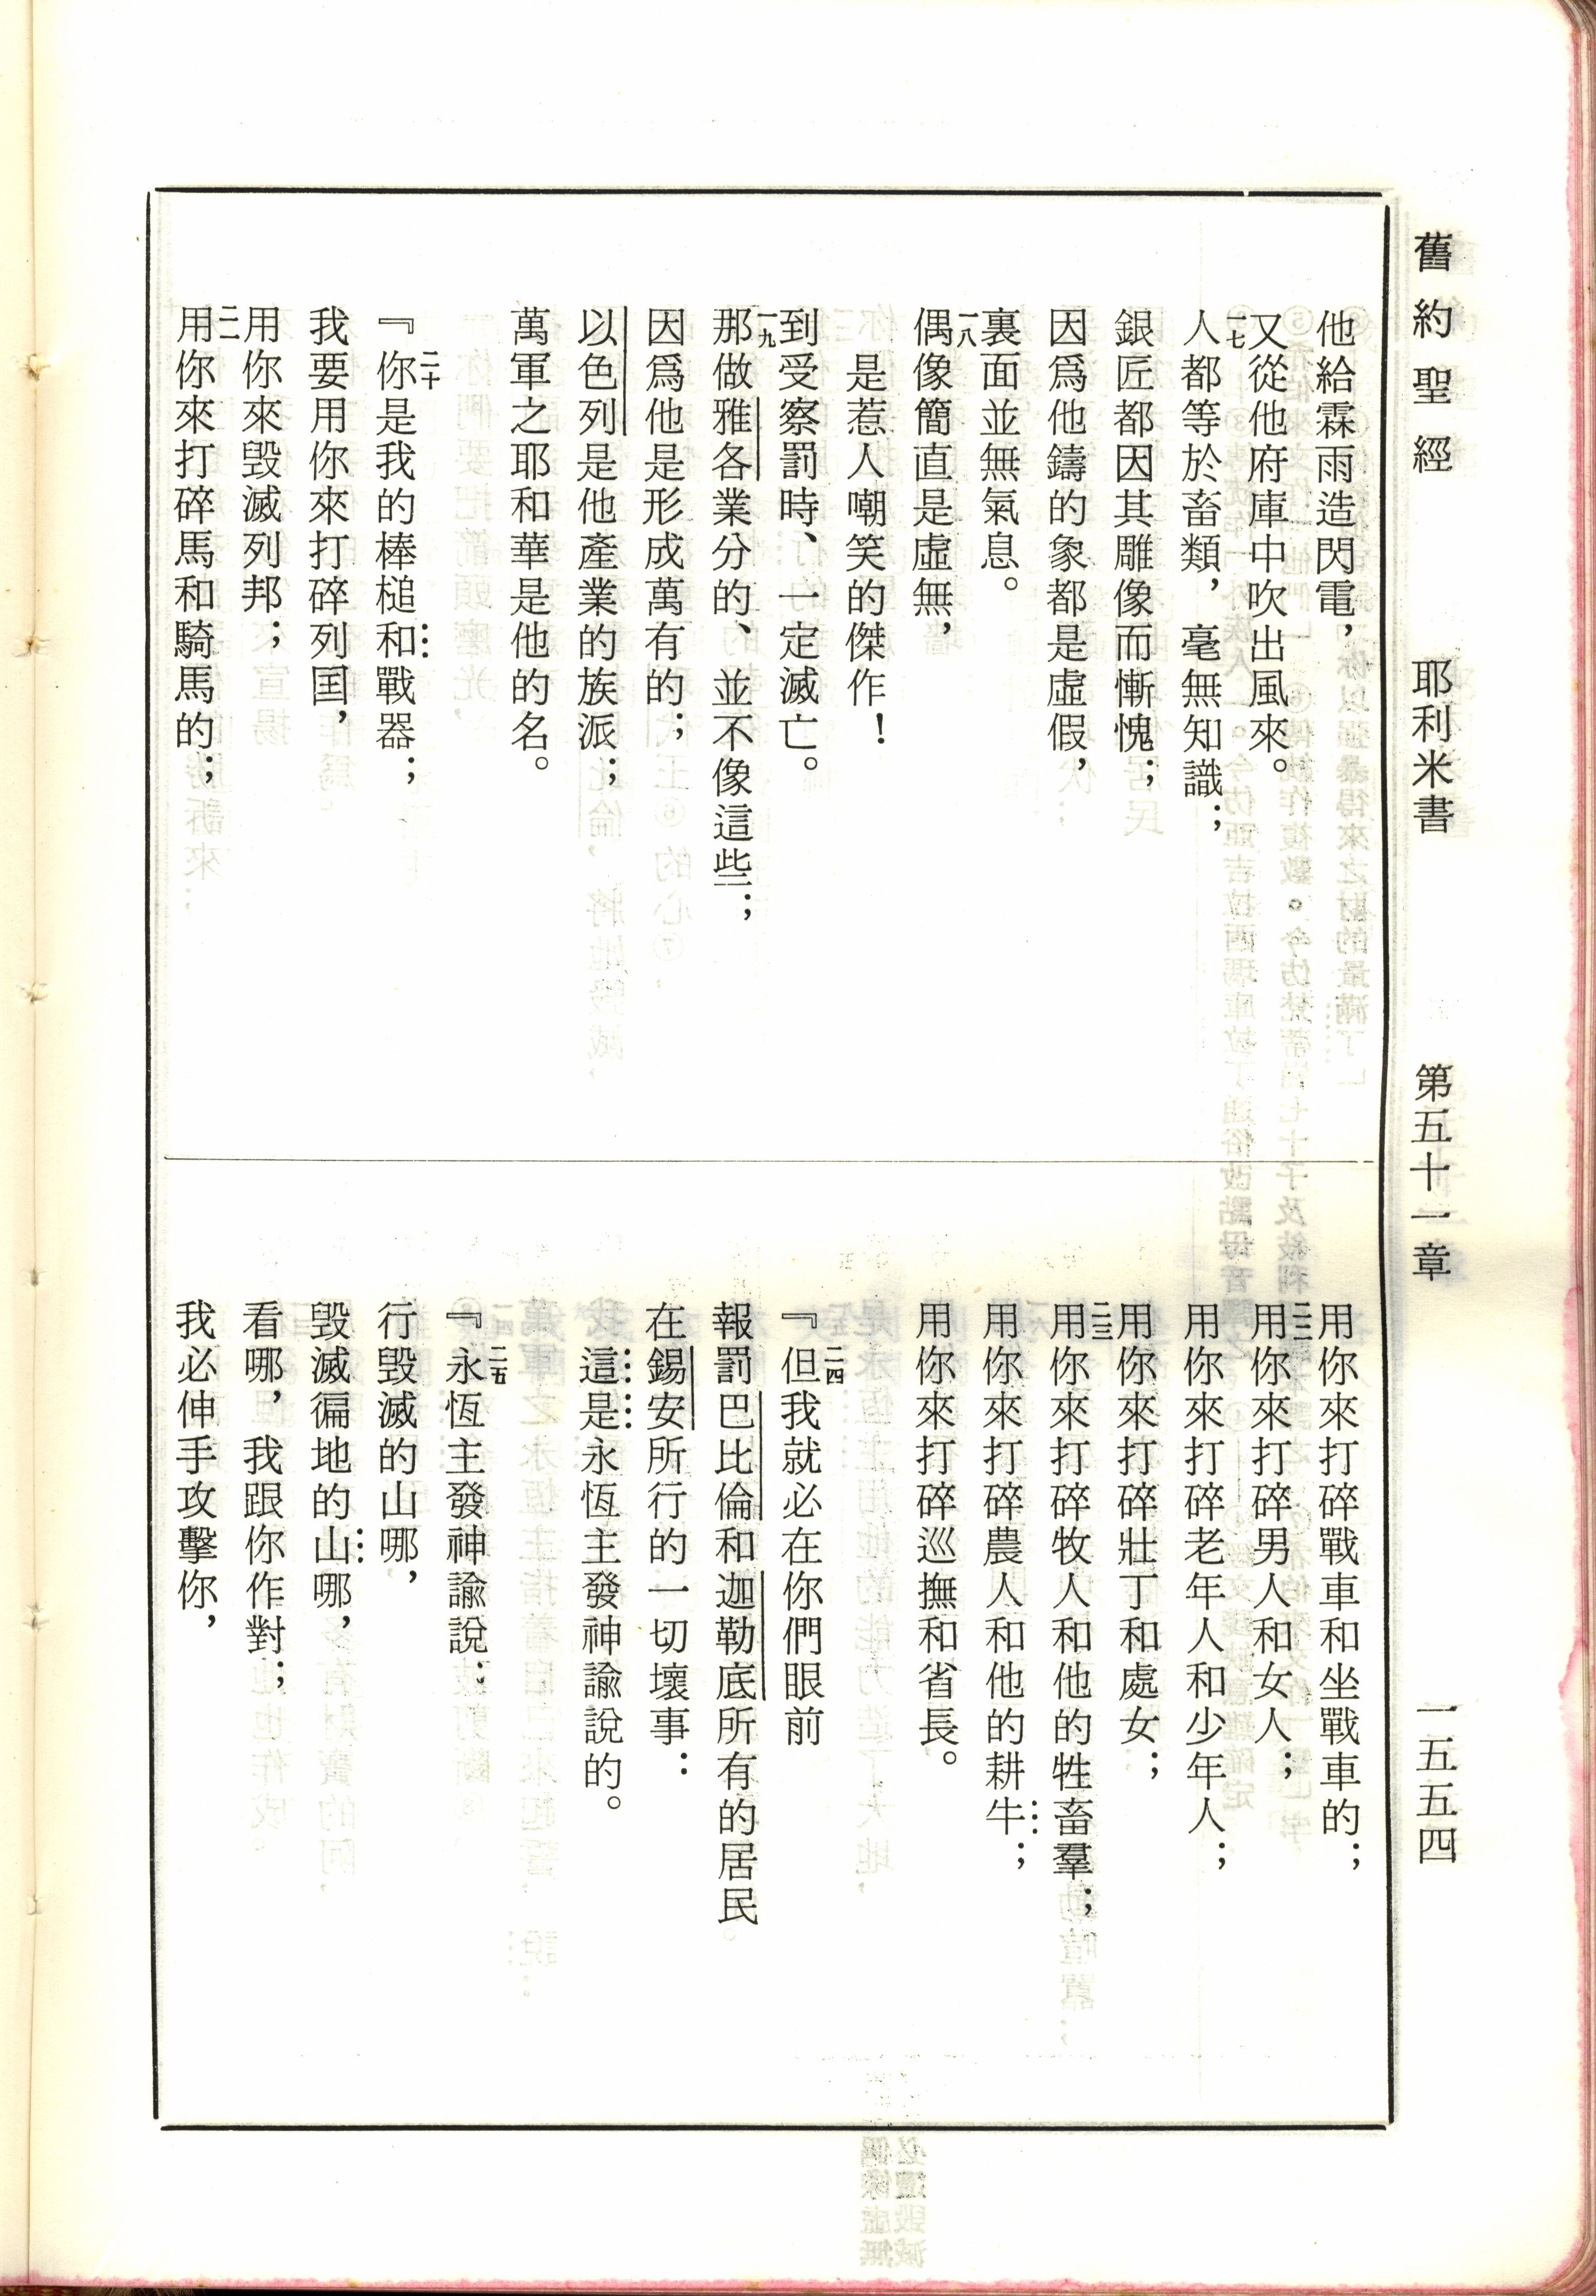 舊約聖經　耶利米書　第五十一章　一五五四
他給霖雨造閃電，
又從他府庫中吹出風來。
一七人都等於畜類，毫無知識；
銀匠都因其雕像而慚愧；
因爲他鑄的象都是虛假，
裏面並無氣息。
一八偶像簡直是虛無，
是惹人嘲笑的傑作！
到受察罰時、一定滅亡。
一九那做雅各業分的、並不像這些；
因爲他是形成萬有的；
以色列是他產業的族派；
萬軍之耶和華是他的名。
『二十你是我的棒槌和戰器；
我要用你來打碎列国，
用你來毀滅列邦；
二一用你來打碎馬和騎馬的；
用你來打碎戰車和坐戰車的；
二二用你來打碎男人和女人；
用你來打碎老年人和少年人；
用你來打碎壯丁和處女；
二三用你來打碎牧人和他的牲畜羣；
用你來打碎農人和他的耕牛；
用你來打碎巡撫和省長。
『二四但我就必在你們眼前
報罰巴比倫和迦勒底所有的居民
在錫安所行的一切壞事：
這是永恆主發神諭說的。
『二五永恆主發神諭說：
行毀滅的山哪，
毀滅徧地的山哪，
看哪，我跟你作對；
我必伸手攻擊你，